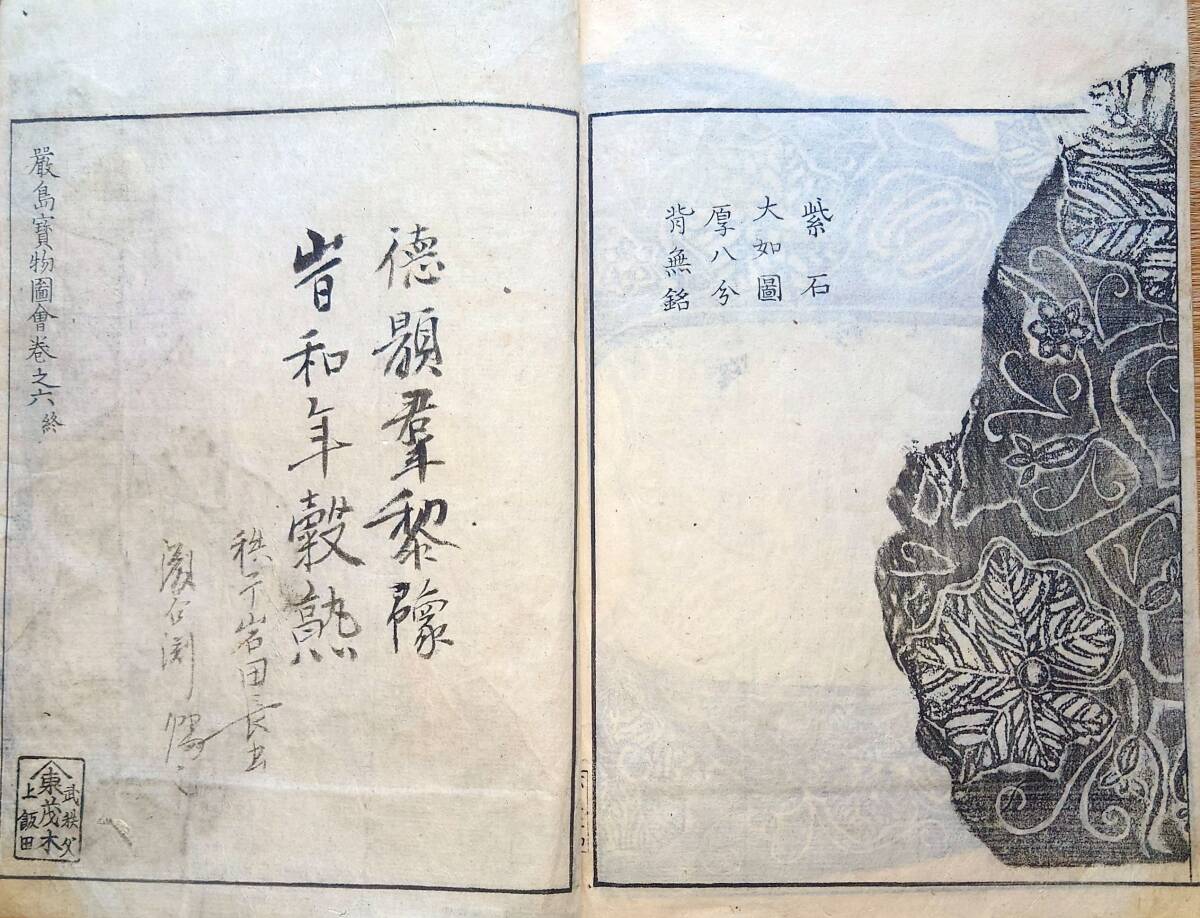 紫石
大如圖
厚八分
背無銘
德羣黎豫
旹和年穀熟
岩田
嚴島寶物圖會卷之六終
武秩父
東茂木
上飯田